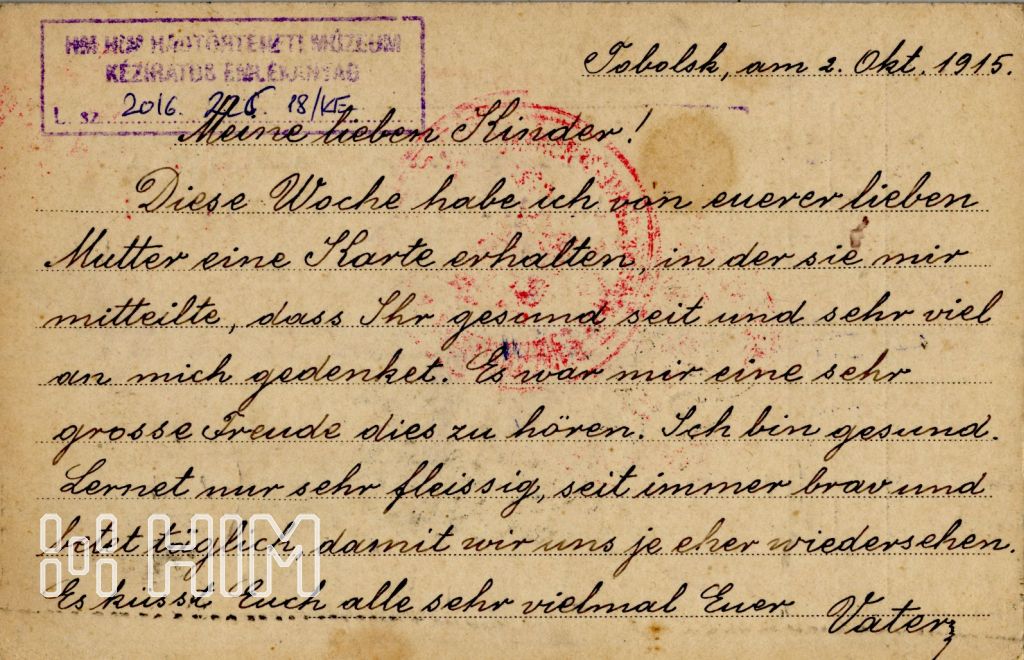 HM HIM HADTÖRTÉNETI MÚZEUM
KÉZIRATOS EMLÉKANYAG
L. sz. 2016. 18/KE
Tobolsk, am 2. Okt. 1915.
Meine lieben Kinder!
Diese Woche habe ich von euerer lieben
Mutter eine Karte erhalten, in der sie mir
mitteilte, dass Ihr gesund seit und sehr viel
an mich gedenket. Es war mir eine sehr
grosse Freude dies zu hören. Ich bin gesund.
Lernet nur sehr fleissig, seit immer brav und
betet täglich, damit wir uns je eher wiedersehen.
Es küsst Euch alle sehr vielmal Euer Vater
HIM